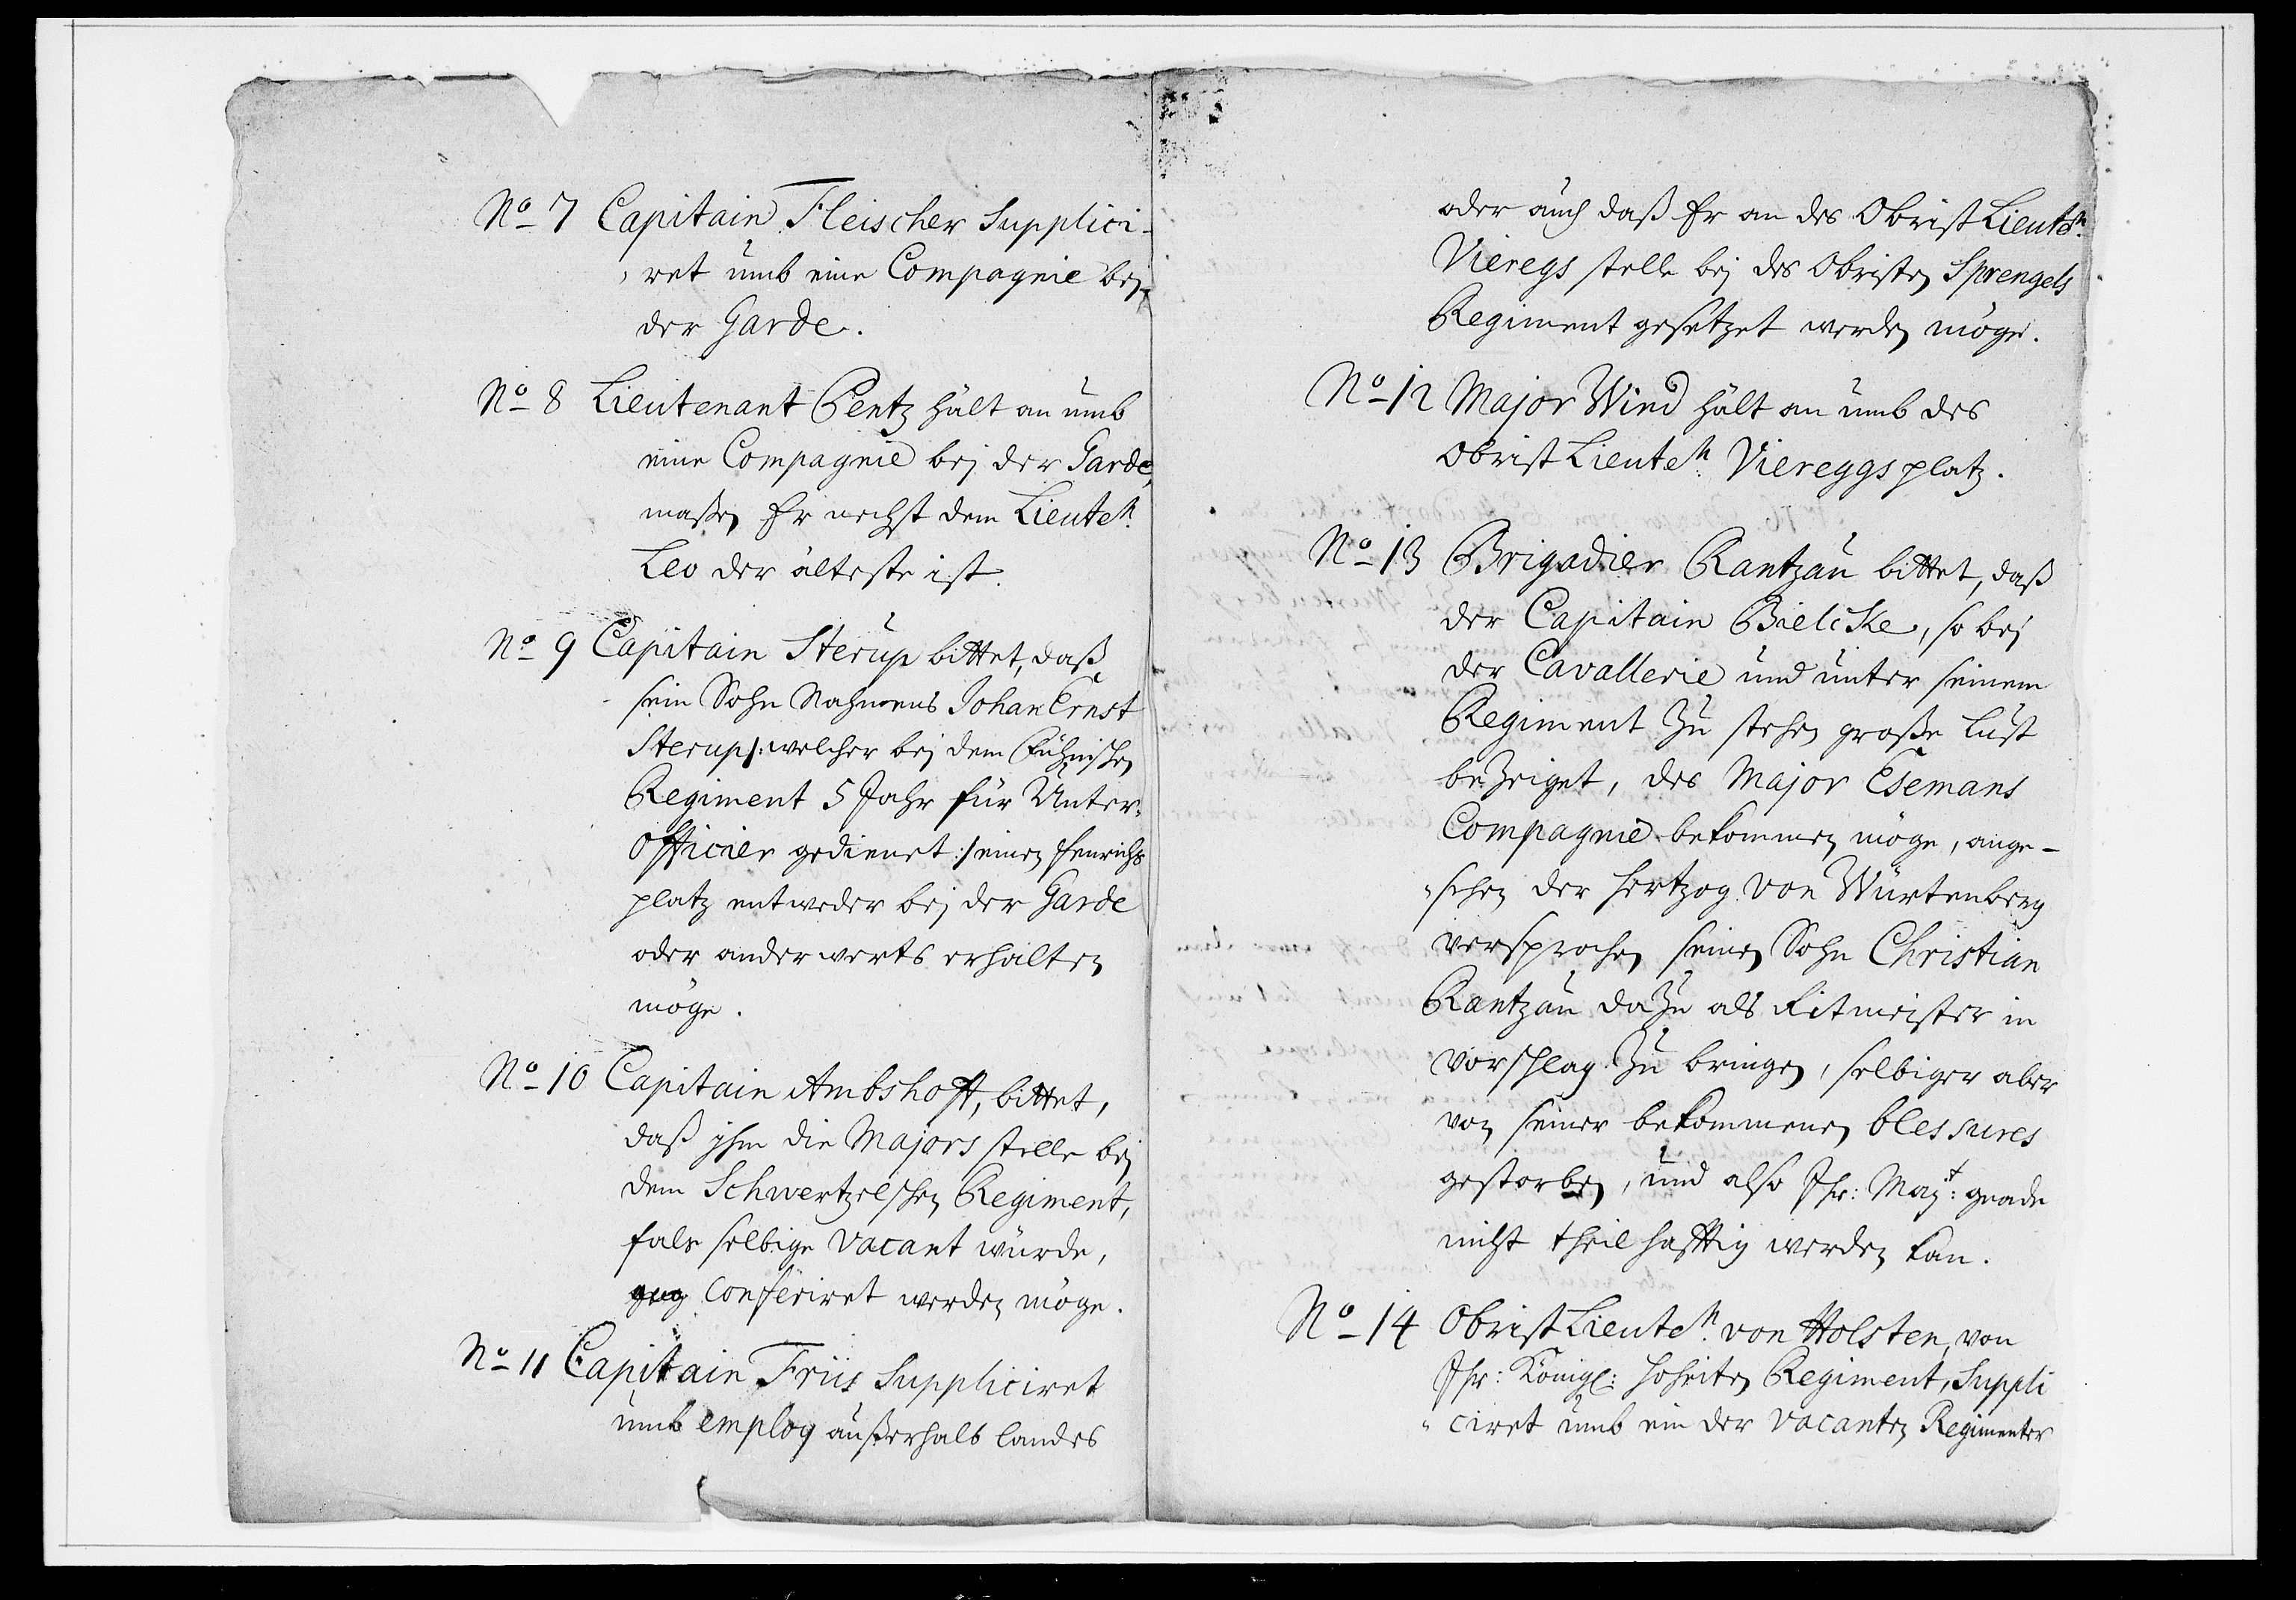 No 7 Capitain Fleischer Supplici-
ret umb eine Compagnie bej
der Garde.
No 8 Lieutenant Pentz hält an umb
eine Compagnie bej der Garde,
maßen Er nechst dem Lieuten.
Leo der älteste ist.
No 9 Capitain Sterup bittet, daß
sein Sohn Nahmens Johan Ernst
Sterup /: welcher bej dem Fühnischen
Regiment 5 Jahr für Unter-
Officier gedienet :/ einen fenrichs
platz entweder bej der Garde
oder anderwerts erhalten
möge.
No 10 Capitain Ambshoff, bittet,
daß ihm die Majors stelle bej
dem Schwertzelschen Regiment,
fals selbige vacant würde,
conferiret werden möge.
No 11 Capitain Friis Suppliciret
umb employ außerhalb landes
oder auch daß Er an des Obrist Lieuten.
Vieregs stelle bej des Obristen Sprengels
Regiment gesetzet werden möge.
No 12 Major Wind hält an umb des
Obrist Lieuten. Viereggs platz.
No 13 Brigadier Rantzau bittet, daß
der Capitain Bielcke, so bej
der Cavallerie und unter seinem
Regiment zu stehen große lust
bezeiget, des Major Esemans
Compagnie bekommen möge, ange-
sehen der Hertzog von Würtenberg
versprochen seinen Sohn Christian
Rantzau dazu als Ritmeister in
vorschlag zu bringen, selbiger aber
von seiner bekommenen blessures
gestorben, und also Ihr: Mayt: gnade
nicht theilhafftig werden kan.
No 14 Obrist Lieuten. von Holsten, von
Ihr: Königl: Hoheiten Regiment, Suppli
ciret umb ein der vacanten Regimenter